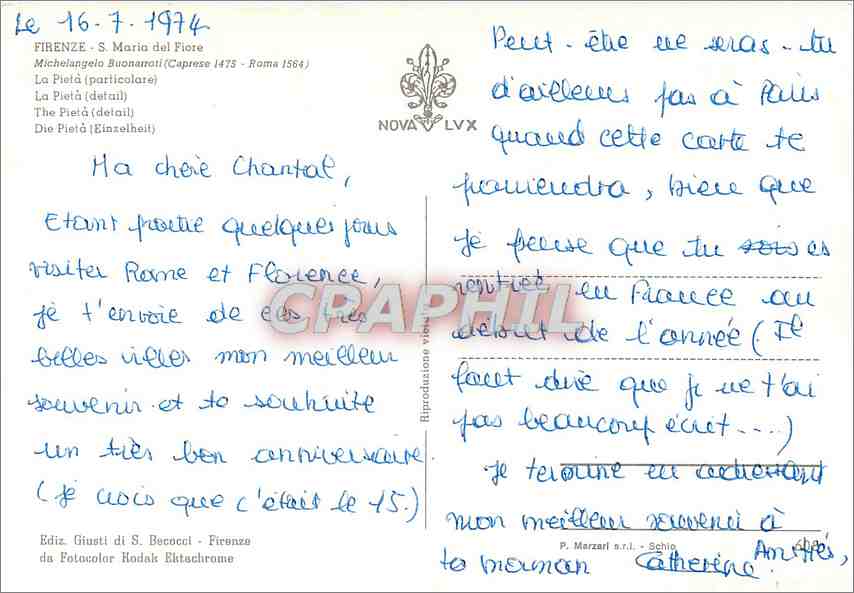 Le 16.7.1974
FIRENZE - S. Maria del Fiore
Michelangelo Buonarroti (Caprese 1475 - Roma 1564)
La Pietà (particolare)
La Pietà (détail)
The Pietà (detail)
Die Pietà (Einzelheit)
NOVA LVX
Ma chère Chantal,
Etant partie quelques jours
visiter Rome et Florence,
je t'envoie de ces très
belles villes mon meilleur
souvenir et te souhaite
un très bon anniversaire.
(je crois que c'était le 15.)
Ediz. Giusti di S. Becocci - Firenze
da Fotocolor Kodak Ektachrome
CPAPHIL
Riproduzione vietata
Peut-être ne seras-tu
d'ailleurs pas à Paris
quand cette carte te
parviendra, bien que
je pense que tu sois es
rentrée en France au
début de l'année (Il
faut dire que je ne t'ai
pas beaucoup écrit....)
Je termine en adressant
mon meilleur souvenir à
ta maman
Amitiés,
Catherine.
P. Marzari s.r.l. - Schio